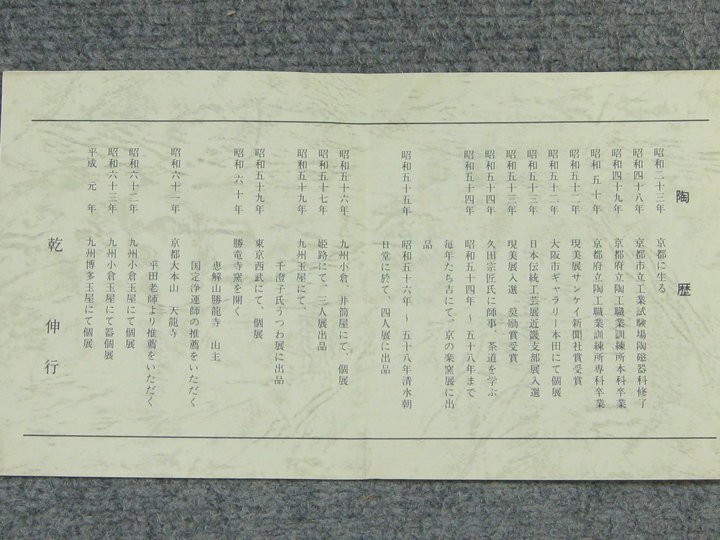 陶歴
昭和二十三年 京都に生る
昭和四十八年 京都市立工業試験場陶磁器科修了
昭和四十九年 京都府立陶工職業訓練所本科卒業
昭和五十年 京都府立陶工職業訓練所専科卒業
昭和五十二年 現美展サンケイ新聞社賞受賞
昭和五十二年 大阪市ギャラリー本田にて個展
昭和五十三年 日本伝統工芸展近畿支部展入選
昭和五十三年 現美展入選 奨励賞受賞
昭和五十四年 久田宗匠氏に師事、茶道を学ぶ
昭和五十四年 昭和五十四年～五十八年まで
毎年たち吉にて、京の栞窯展に出
品
昭和五十五年 昭和五十六年～五十八年清水朝
日堂に於て、四人展に出品
昭和五十六年 九州小倉、井筒屋にて、個展
昭和五十七年 姫路にて、三人展出品
昭和五十九年 九州玉屋にて、
千澄子氏うつわ展に出品
昭和五十九年 東京西武にて、個展
昭和六十年 勝竜寺窯を開く
恵解山勝龍寺 山主
国定浄運師の推薦をいただく
昭和六十一年 京都大本山 天龍寺
平田老師より推薦をいただく
昭和六十二年 九州小倉玉屋にて個展
昭和六十三年 九州小倉玉屋にて器個展
平成元年 九州博多玉屋にて個展
乾伸行